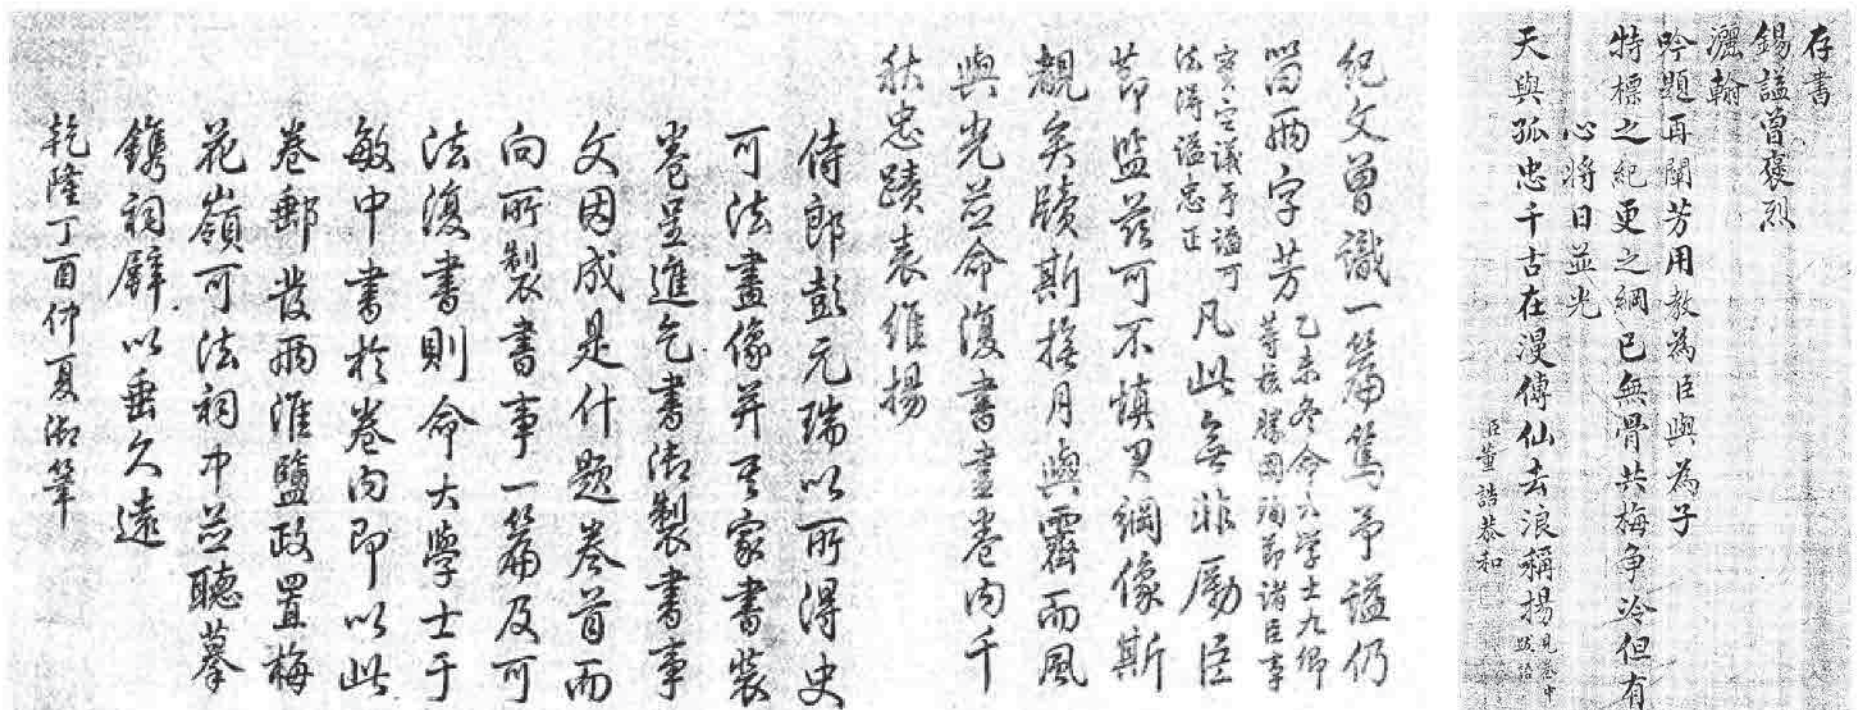 存書
錫諡曾褒烈
灑翰
吟題再闡芳用教為臣與為子
特標之紀更之綱已無骨共梅争冷但有
心將日並光
天與孤忠千古在漫傳仙去浪稱揚見卷中
跋語
臣董誥恭和
紀文曾識一篇篤予諡仍
留兩字芳
乙未冬命大学士九卿
等核勝國殉節諸臣事
實定議予諡可
法得諡忠正
凡此無非勵臣
節監茲可不慎君綱像斯
覩矣牘斯撫月與霽而風
與光並命復書書卷內千
秋忠蹟表維揚
侍郎彭元瑞以所得史
可法畫像并其家書裝
卷呈進乞書御製書事
文因成是什題卷首而
向所製書事一篇及可
法復書則命大學士于
敏中書於卷內即以此
卷郵發兩淮鹽政置梅
花嶺可法祠中並聽摹
鐫祠壁以垂久遠
乾隆丁酉仲夏御筆